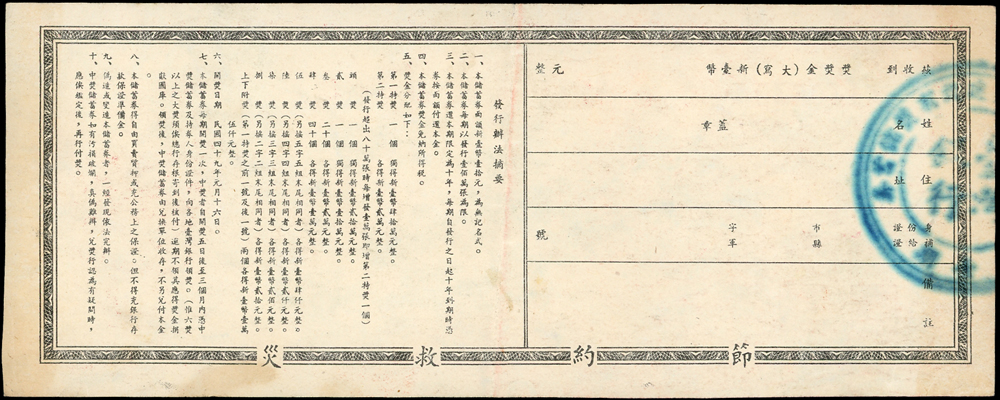 茲收到 獎獎金(大寫)新臺幣 元整
姓名 蓋章
住址
身份證 市縣 字 號
補給證 軍
備註
發行辦法摘要
一、本儲蓄券面額新臺幣壹拾元,為無記名式。
二、本儲蓄券每期以發行壹佰萬張為限。
三、本儲蓄券還本期限定為十年,每期自發行之日起十年到期時憑
券按面額付還本金。
四、本儲蓄券獎金免納所得稅。
五、獎金分配如下:
第一特獎 一個 獨得新臺幣肆拾萬元整。
第二特獎 一個 各得新臺幣貳萬元整。
(發行超出八十萬張時每增發壹萬張即增第二特獎一個)
頭 獎 一個 獨得新臺幣貳拾萬元整。
貳 獎 一個 獨得新臺幣壹拾萬元整。
叁 獎 二十個 各得新臺幣貳萬元整。
肆 獎 四十個 各得新臺幣壹萬元整。
伍 獎(另搖五字五組末尾相同者)各得新臺幣肆仟元整。
陸 獎(另搖四字四組末尾相同者)各得新臺幣貳仟元整。
柒 獎(另搖三字三組末尾相同者)各得新臺幣貳佰元整。
捌 獎(另搖二字二組末尾相同者)各得新臺幣貳拾元整。
上下附獎(第一特獎之前一號及後一號)兩個各得新臺幣壹萬
伍仟元整。
六、開獎日期 民國四十九年元月十六日。
七、本儲蓄券每期開獎一次,中獎者自開獎五日後至三個月內憑中
獎儲蓄券及持券人身份證件,向各地臺灣銀行領獎。(惟六獎
以上之大獎須俟總行存根寄到後核付)逾期不領其應得獎金捐
獻國庫。領獎後,中獎儲蓄券由兌換單位收存,不另兌付本金
。
八、本儲蓄券得自由買賣質押或充公務上之保證。但不得充銀行存
款保證準備金。
九、偽造或變造本儲蓄券者,一經發現依法究辦。
十、中獎儲蓄券如有污損破爛,真偽難辨,兌獎行認為有疑問時,
應俟鑑定後,再行付獎。
節約救災